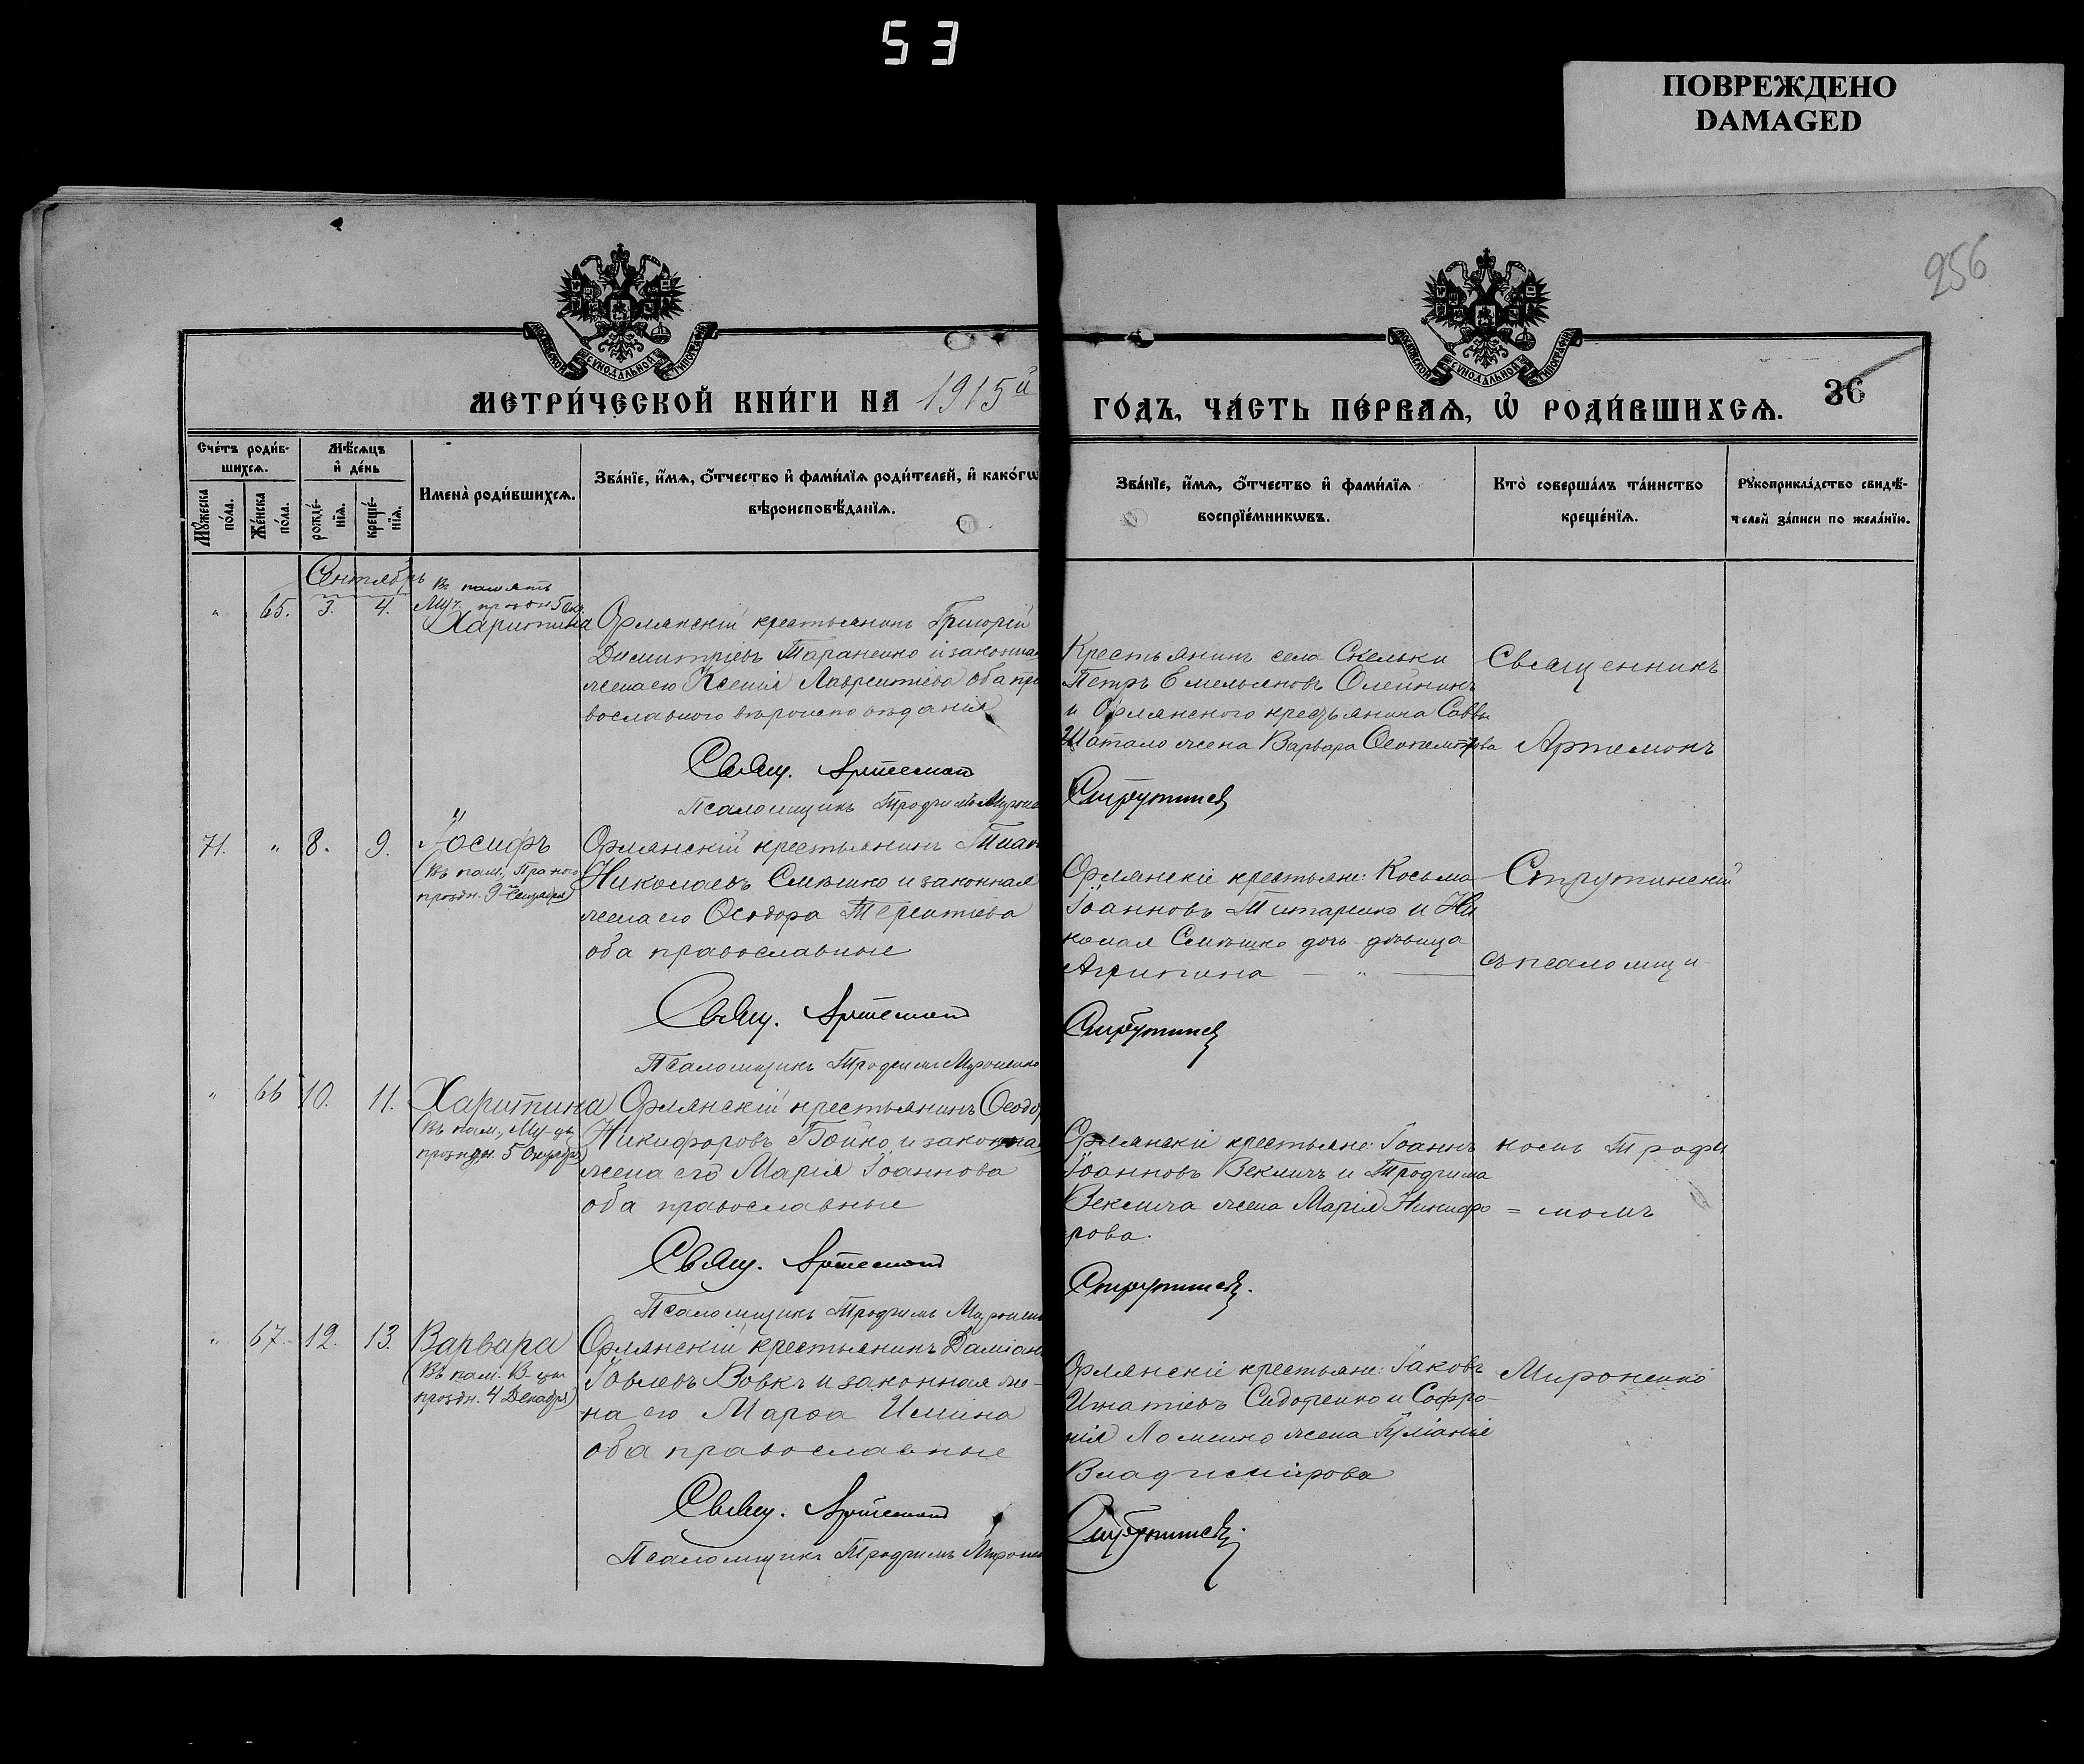 53
ПОВРЕЖДЕНО
DAMAGED
256
МОСКОВСКОЙ СѴНОДАЛЬНОЙ ТИПОГРАФІИ
МЕТРИ́ЧЕСКОЙ КНИ́ГИ НА 1915й
МОСКОВСКОЙ СѴНОДАЛЬНОЙ ТИПОГРАФІИ
ГО́ДЪ, ЧА́СТЬ ПЕ́РВАѦ, Ѽ РОДИ́ВШИХСѦ.
36
Сче́тъ роди́в-
шихсѧ.
Мꙋ́жеска по́ла.
Же́нска по́ла.
Мѣ́сѧцъ
и҆ де́нь
рожде́-нїѧ.
креще́-нїѧ.
Имена̀ роди́вшихсѧ.
Зва́нїе, и҆́мѧ, ѻ҆́тчество и҆ фами́лїѧ роди́телей, и҆ како́гѡ
вѣроисповѣ́данїѧ.
Зва́нїе, и҆́мѧ, ѻ҆́тчество и҆ фами́лїѧ
воспрїе́мникѡвъ.
Кто̀ соверша́лъ та́инство
креще́нїѧ.
Рꙋкоприкла́дство свидѣ́-
телей за́писи по жела́нїю.
Сентябрь
" 65. 3. 4.
Въ память
Муч. праздн 5 Окт.
Харитина
Орлянскій крестьянинъ Григорій
Димитріевъ Тараненко и законная
жена его Ксенія Лаврентіева оба пра
вославного вѣроисповѣданія
Свящ. Артемонъ
Псаломщикъ Трофимъ Мироне
Крестьянинъ села Скельки
Петръ Емельяновъ Олейникъ
и Орлянского крестьянина Саввы
Шатало жена Варвара
Струтинскій
Священникъ
Артемонъ
71. " 8. 9.
Іосифъ
(Въ пам.
праздн. 9 Сентября)
Орлянскій крестьянинъ
Николаевъ Смѣшко и законная
жена его Ѳеодора Терентіева
оба православные
Свящ. Артемонъ
Псаломщикъ Трофимъ Мироненко
Орлянскіе крестьяне: Косьма
Іоанновъ Титаренко и Ни
колая Смѣшко дочь-дѣвица
Агрипина — " —
Струтинскій
Струтинскій
съ псаломщи-
" 66 10. 11.
Харитина
(Въ пам. Му-цы
праздн. 5 Октября)
Орлянскій крестьянинъ Ѳеодоръ
Никифоровъ Бойко и законная
жена его Марія Іоаннова
оба православные
Свящ. Артемонъ
Псаломщикъ Трофимъ Мироненко
Орлянскіе крестьяне: Іоаннъ
Іоанновъ Векличъ и Трофима
Веклича жена Марія Никифо
рова.
Струтинскій.
комъ Трофи
= момъ
" 67. 12. 13.
Варвара
(Въ пам. В-цы
праздн. 4 Декабря)
Орлянскій крестьянинъ Даміанъ
Іовлевъ Вовкъ и законная же-
на его Марѳа Ильина
оба православные
Свящ. Артемонъ
Псаломщикъ Трофимъ Мироне
Орлянскіе крестьяне: Іаковъ
Игнатіевъ Сидоренко и Софро-
нія жена Іуліанія
Владимірова
Струтинскій.
Мироненко